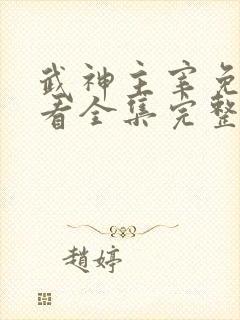 武神主宰免
看全集完整
趙婷